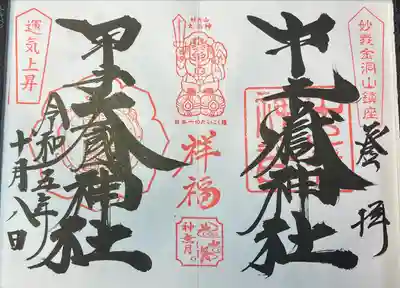 妙義金洞山鎮座
登拝
中之嶽神社
日本一のだいこく様
祥福
神無月。
運気上昇
甲子大國神社
令和五年
十月八日